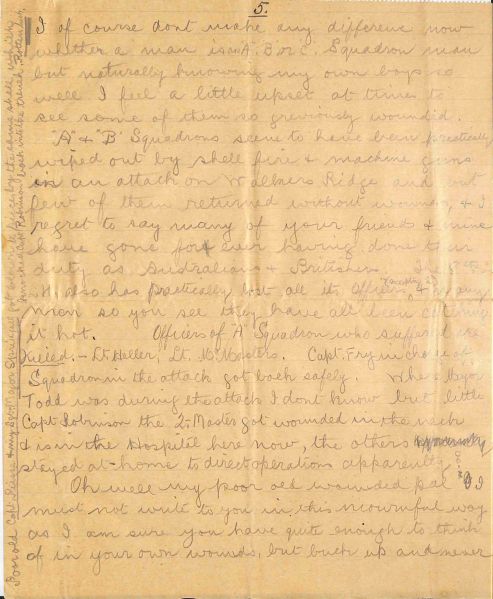 5.
I of course dont make any difference now
whether a man is an "A", B or C. Squadron man
but naturally knowing my own boys so
well I feel a little upset at times to
see some of them so grievously wounded.
"A" & "B" Squadrons seem to have been practically
wiped out by shell fire & machine guns
in an attack on Walkers Ridge and but
few of them returned without wounds, & I
regret to say many of your friends & mine
have gone for ever having done their
duty as Australians & Britishers. The 8th L.
H also has practically lost all its Officers & many
men so you see they have all been catching
it hot. – Officers of "A" Squadron who suffered are
Killed – Lt. Heller, Lt. McMasters. Capt. Fry in charge of
Squadron in the attack got back safely. Where Major
Todd was during the attack I dont know but little
Capt Robinson the 2. Master got wounded in the neck
& is in the Hospital here now, the others
stayed at home to direct operations apparently
Oh well my poor old wounded pal I
must not write to you in this mournful way
as I am sure you have quite enough to think
of in your own wounds, but buck up and never
Poor old Capt. & my got blown to pieces by the same shell which
wounded Capt Robinson back in the trench. Rotten luck.